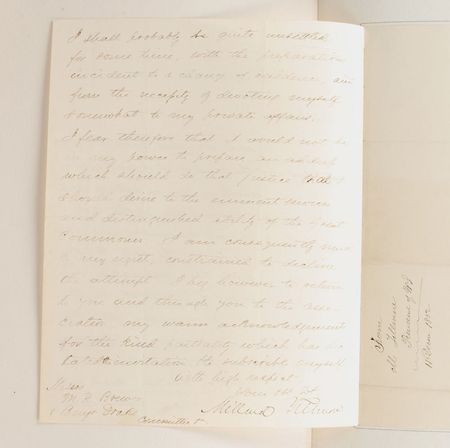 I shall probably be quite unsettled
for some time, with the preparation
incident to a change of residence, and
from the necessity of devoting myself
somewhat to my private affairs.
I fear therefore that it would not be
in my power to prepare an address
which should do that justice that I
should desire to the eminent services
and distinguished ability of the great
Commoner. I am consequently
constrained to decline
the attempt. I beg however to return
to you and through you to the asso-
ciation my warm acknowledgement
for the kind partiality which has
invitation to subscribe myself
with high respect
Your Obt St
Millard Fillmore
Messrs
M. P. Brown
Benj Drake
Committee